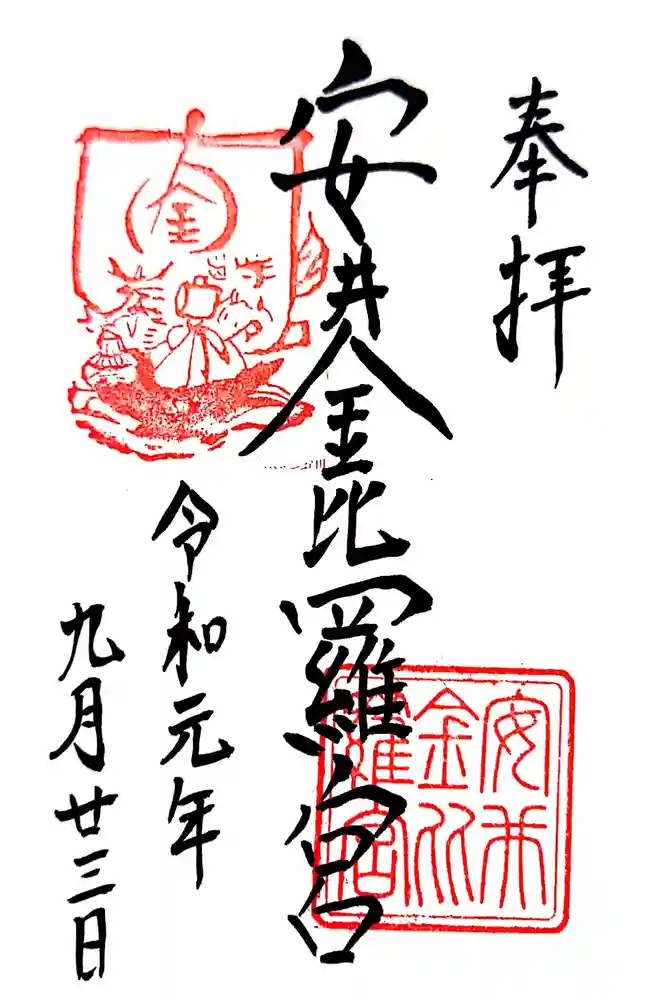 奉拝
安井金比羅宮
令和元年
九月廿三日
金
安井
金比
羅宮